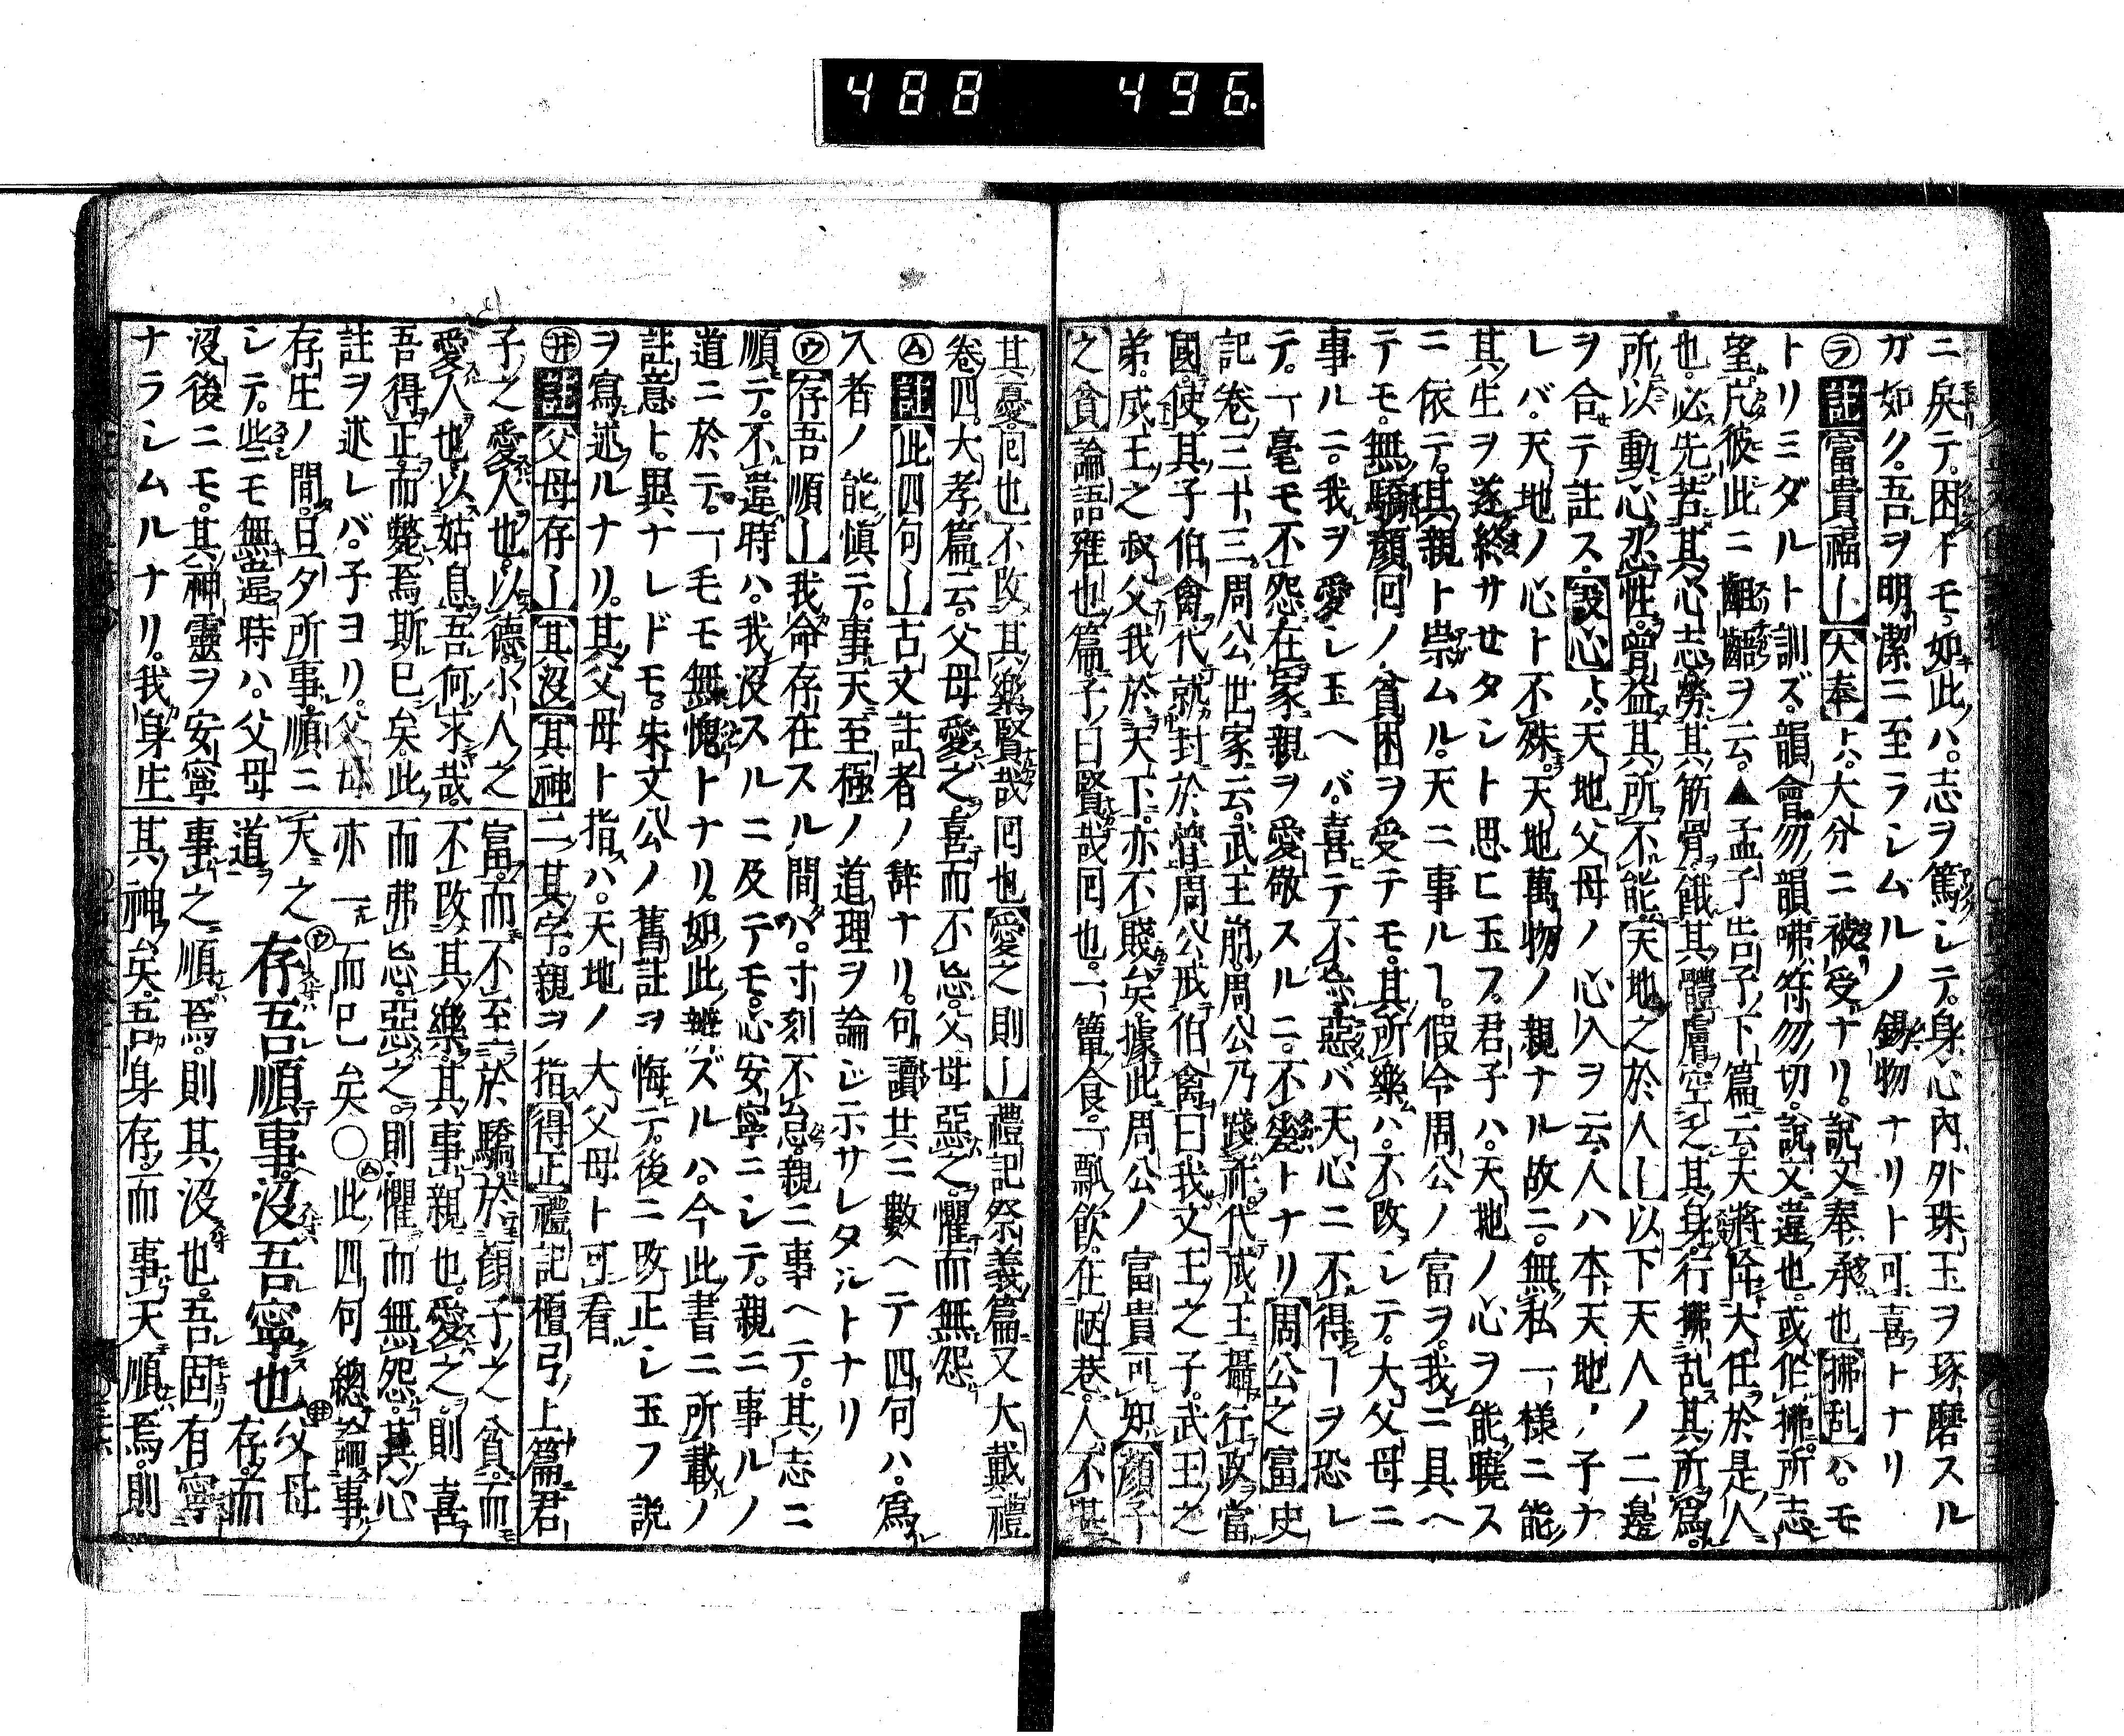 488 496
ニ矣テ。困トモ。如此ハ。志ヲ篤シテ。身心内外珠玉ヲ琢磨スル
ガ如ク。吾ヲ明潔ニ至ラシムルノ錫物ナリト可喜トナリ
㋶註富貴福〡大奉トハ。大分ニ被受ナリ。說文奉承也拂乱ハ。モ
トリミダルト訓ズ。韻會勿韻咈符勿切。說文違也。或作拂。所志
望。凡彼此ニ齟齬ヲ云。▲孟子告子下篇云。天將降大任於是人
也。必先苦其心志。勞其筋骨。餓其體膚。空乏其身。行拂乱其所爲。
所以動心忍性。曾益其所不能。天地之於人〡以下天人ノ二邊
ヲ合テ註ス。設心トハ。天地父母ノ心入ヲ云。人ハ本天地ノ子ナ
レバ。天地ノ心ト不殊。天地萬物ノ親ナル故ニ。無私一樣ニ能
其生ヲ遂終サセタシト思ヒ玉フ。君子ハ。天地ノ心ヲ能曉ス
ニ依テ。其親ト崇ムル。天ニ事ルヿ。假令周公ノ富ヲ。我ニ具ヘ
テモ。無驕。顏回ノ貧困ヲ受テモ。其所樂ハ。不改シテ。大父母ニ
事ルニ。我ヲ愛シ玉ヘバ。喜テ不忘。惡バ天心ニ不得ヿヲ恐レ
テ。一毫モ不怨。在家親ヲ愛敬スルニ。不變トナリ周公之富史
記卷三十三。周公世家云。武王崩。周公乃踐祚。代成王攝行政當
國。使其子伯禽代就封於魯。周公戒伯禽曰我文王之子。武王之
弟。成王之叔父。我於天下。亦不賤矣。據此周公ノ富貴可知顏子
之貧論語雍也篇。子曰賢哉回也。一簞食。一瓢飲。在陋巷。人不堪
其憂。回也不改其樂。賢哉回也愛之則〡禮記祭義篇又大戴禮
卷四。大孝篇云。父母愛之。喜而不忘。父母惡之。懼而無怨
㋰註此四句〡古文註者ノ辭ナリ。句讀共ニ數ヘテ四句ハ。爲
ス者ノ能愼テ。事天至極ノ道理ヲ論ジ示サレタルトナリ
㋒存吾順〡我命存在スル間ハ。寸刻不怠。親ニ事ヘテ。其志ニ
順テ。不違時ハ。我沒スルニ及テモ。心安寧ニシテ。親ニ事ルノ
道ニ於テ。一毛モ無愧トナリ。如此辨ズルハ。今此書ニ所載ノ
註意ト。異ナレドモ。朱文公ノ舊註ヲ悔テ。後ニ改正シ玉フ說
ヲ寫述ルナリ。其父母ト指ハ。天地ノ大父母ト可看
㋼註父母存〡其沒其神二其字。親ヲ指得正禮記檀弓上篇君
子之愛人也。以德。小人之
愛人也。以姑息。吾何求哉。
吾得正而斃焉斯已矣。此
註ヲ述レバ。子ヨリ。父母
存生ノ間。旦夕所事。順ニ
シテ。些ニモ無違時ハ。父母
沒後ニモ。其神靈ヲ安寧
ナラシムルナリ。我身生
富。而不至於驕。於顏子之貧。而
不改其樂。其事親也。愛之。則喜
而弗忘。惡之。則懼而無怨。其心
亦一而已矣○㋰此四句總論事
天之道
㋒存吾順事。沒吾寧也
㋼父母存。而
事之順焉。則其沒也。吾固有寧
其神矣。吾身存。而事天順焉。則